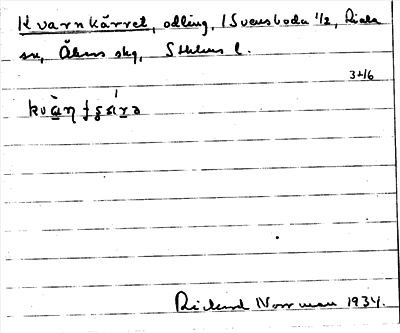 Kvarnkärret, odling, 1 Svensboda 1/2, Riala
sn, Åkers skg, Sthlms l.
3+16
Rickard Norrman 1934.